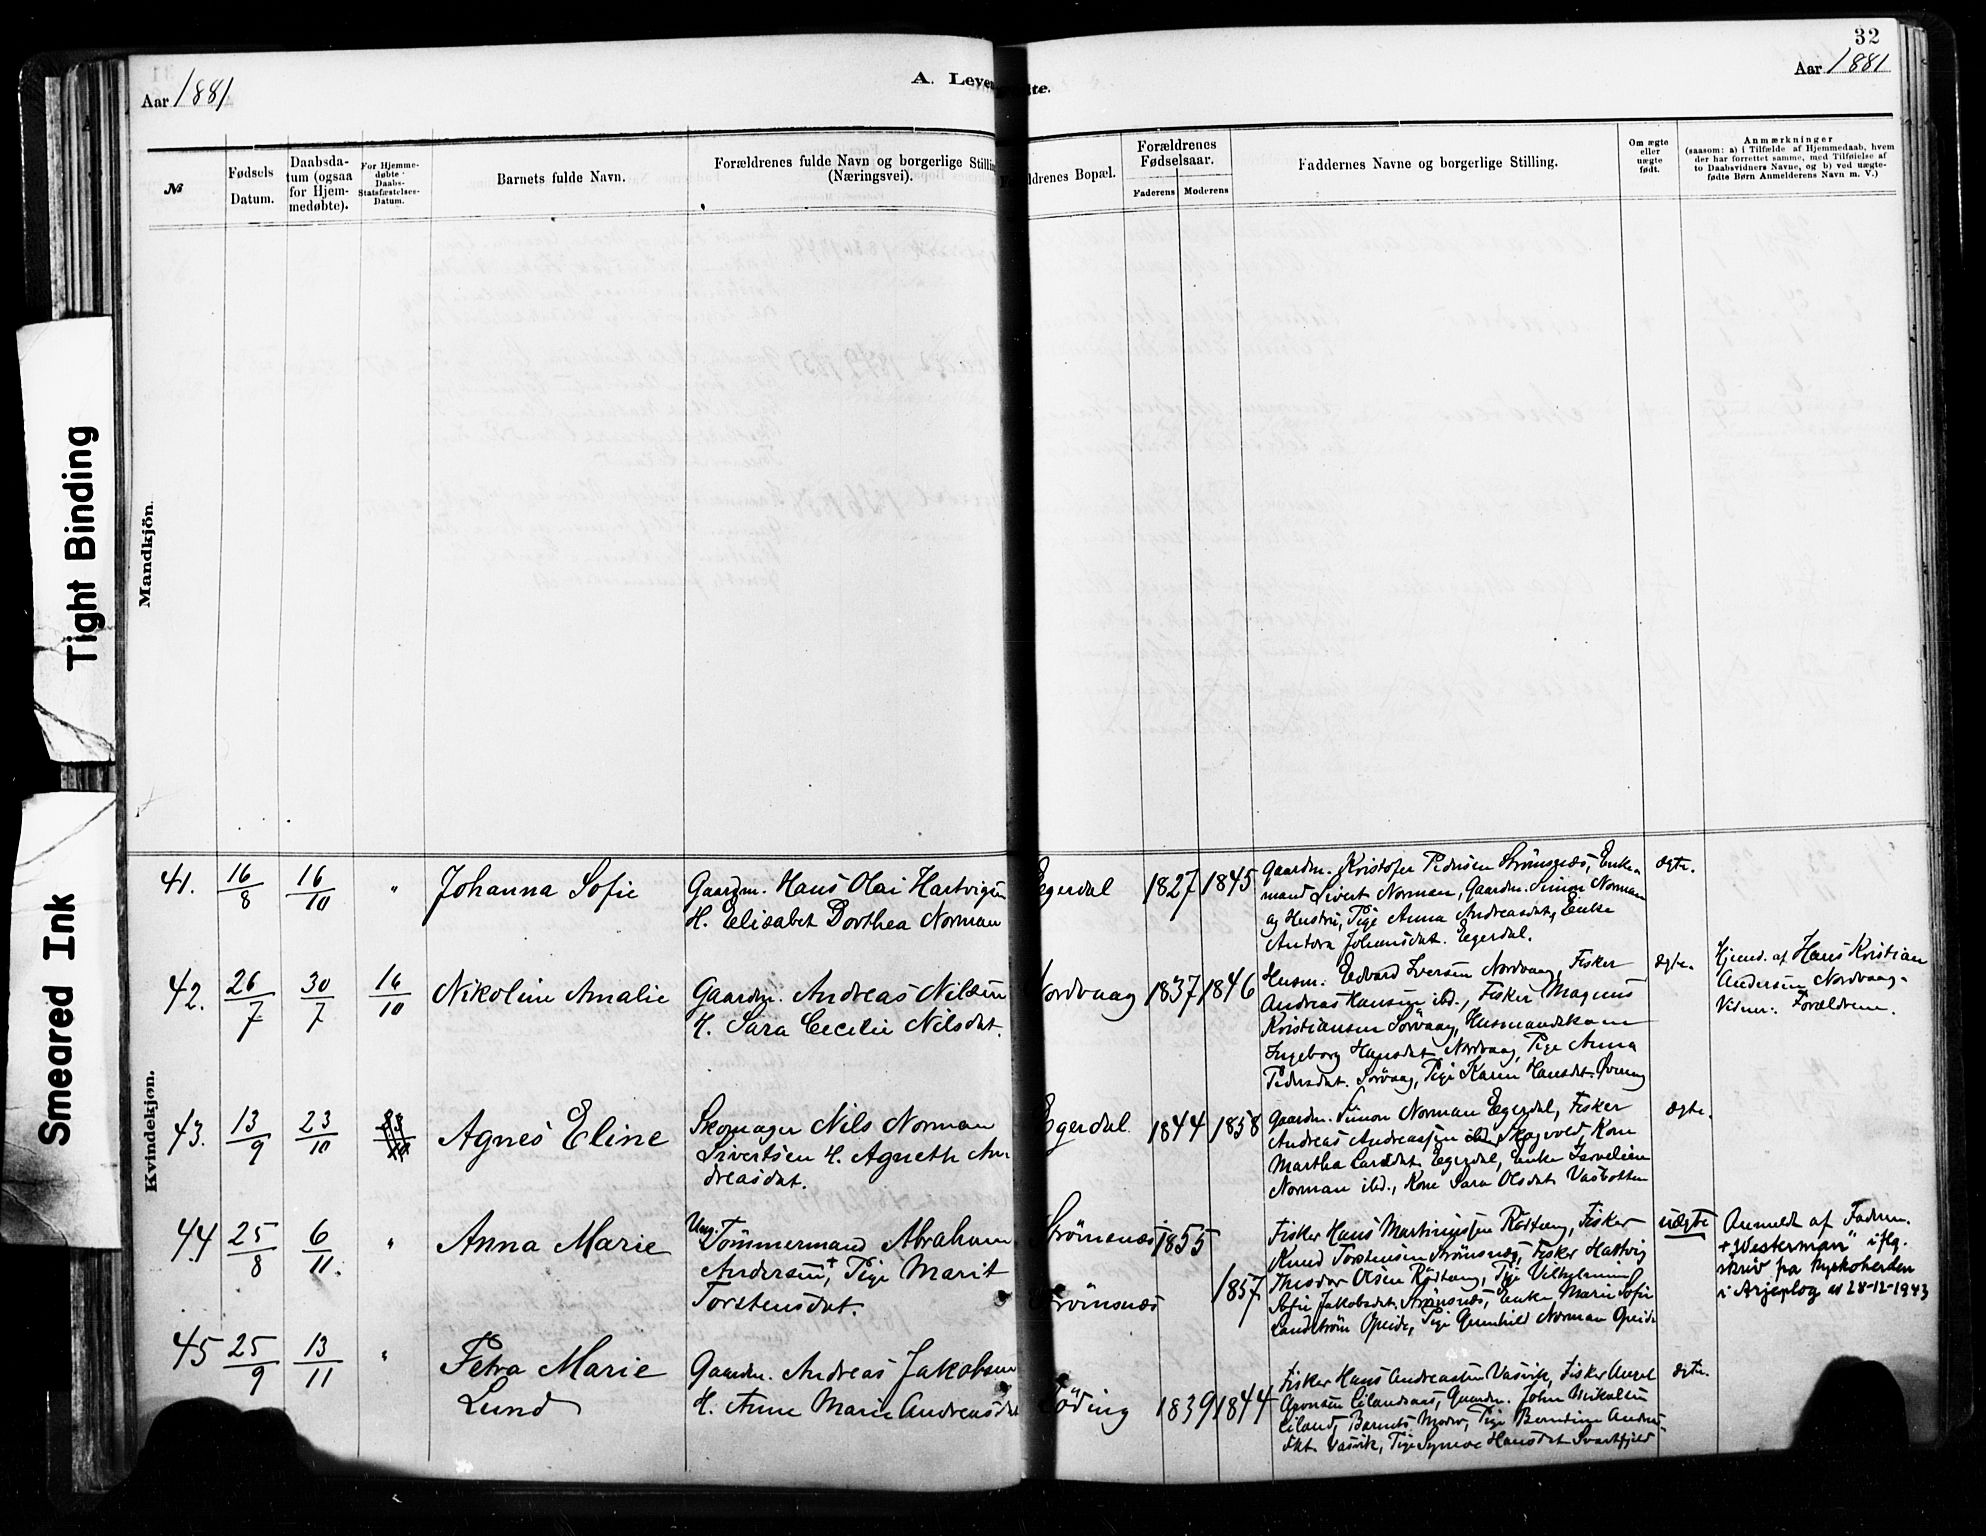 32
Aar 1881
A. Leven
dte.
Aar 1881
№
Fødsels Datum.
Daabsdatum (ogsaa for Hjemmedøbte).
For Hjemmedøbte Daabs-Statsfæstelses-Datum.
Barnets fulde Navn.
Forældrenes fulde Navn og borgerlige Stilling (Næringsvei).
ldrenes Bopæl.
Forældrenes Fødselsaar.
Faderens
Moderens
Faddernes Navne og borgerlige Stilling.
Om ægte eller uægte født.
Anmærkninger
(saasom: a) i Tilfælde af Hjemmedaab, hvem
der har forrettet samme, med Tilføielse af
to Daabsvidners Navne, og b) ved uægte-
fødte Børn Anmelderens Navn m. V.)
Tight Binding
Smeared Ink
Mandkjön.
Kvindekjøn.
41. 16/8 16/10 " Johanna Sofie
Gaardm. Hans Olai Hartvigsen
H. Elisabet Dorthea Norman
Egerdal 1827 1845
Gaardm. Kristofer Pedersen Strömsnæs, Enke-
mand Sivert Norman, Gaardm. Simon Norman
og Hustru, Pige Anna Andreasdat, Enke
Antora Johansdat. Egerdal.
ægte.
42. 26/7 30/7 16/10 Nikoline Amalie
Gaardm. Andreas Nilsen
H. Sara Cecelie Nilsdat.
Nordvaag 1837 1846
Husm. Edvard Iversen Nordvaag, Fisker
Andreas Hansen ibd., Fisker Magnus
Kristiansen Sörvaag, Husmandskone
Ingeborg Hansdat Nordvaag, Pige Anna
Pedersdat. Sörvaag, Pige Karen Hansdat.
ægte.
Hjemd. af Hans Kristian
Andersen Nordvaag.
Vidner: Forældrene.
43. 13/9 23/10 Agnes Eline
Skomager Nils Norman
Sivertsen H. Agneth An-
dreasdat.
Egerdal 1844 1858
Gaardm. Simon Norman Egerdal, Fisker
Andreas Andreassen Skogvold, Kone
Martha Larsdat. Egerdal, Enke
Norman ibd., Kone Sara Olsdat Vasbotten
ægte.
44. 25/8 6/11. " Anna Marie
Ung. Tömmermand Abraham
Andersen +, Pige Marit
Torstensdat.
Strömsnæs 1855
Strömsnæs 1857
Fisker Hans Martinussen Rödtang, Fisker
Knud Torstensen Strömsnæs, Fisker Hartvig
Theodor Olsen Rödtang, Pige Vilhelmine
Sofie Jakobsdat. Strömsnæs, Enke Marie Sofie
Landström Opeide, Pige Gunhild Norman Opeide
uægte
Anmeldt af Faderen.
+ "Westerman" iflg.
skriv fra kyrkoherden
i Arjeplog av 28-12-1943
45 25/9 13/11 " Petra Marie
Lund
Gaardm. Andreas Jakobsen
H. Anne Marie Andreasdat
Töding 1839 1844
Fisker Hans Andreassen Vasvik, Fisker
Aronsen Eilandsaas, Gaardm. John Mikalsen
Eiland, Barnets Moder, Pige Berndine Andreas-
dat. Vasvik, Pige Synove Hansdat Svartfjeld
ægte.